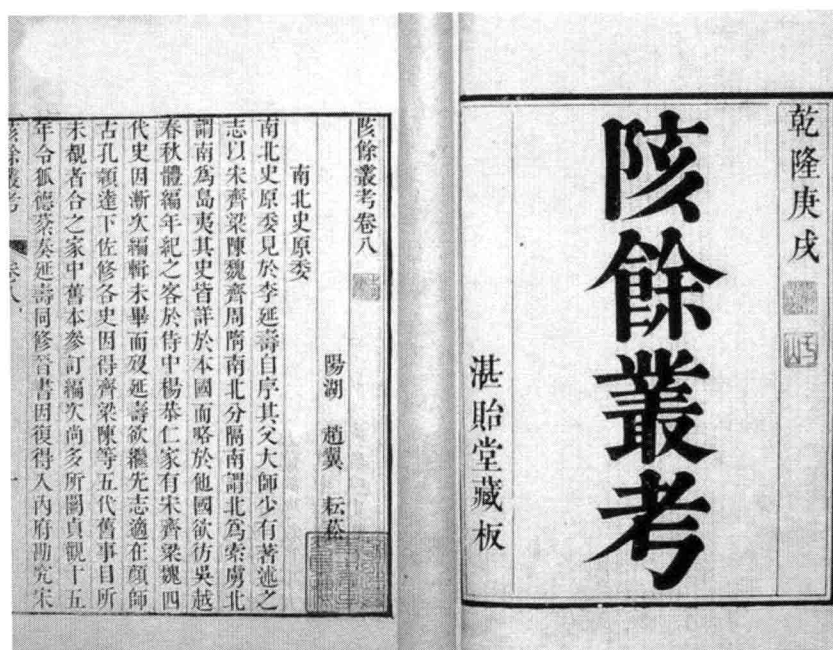 乾隆庚戌
陔餘叢考
湛貽堂藏板
陔餘叢考卷八
陽湖 趙翼 耘菘
南北史原委
南北史原委見於李延壽自序其父大師少有著述之
志以宋齊梁陳魏齊周隋南北分隔南謂北爲索虜北
謂南爲島夷其史皆詳於本國而略於他國欲彷吳越
春秋體編年紀之客於侍中楊恭仁家有宋齊梁魏四
代史因漸次編輯未畢而歿延壽欲繼先志適在顔師
古孔穎達下佐修各史因得齊梁陳等五代舊事目所
未覩者合之家中舊本參訂編次尚多所闕貞觀十五
年令狐德棻奏延壽同修晉書因復得入內府勘究宋
陔餘叢考 卷八 一